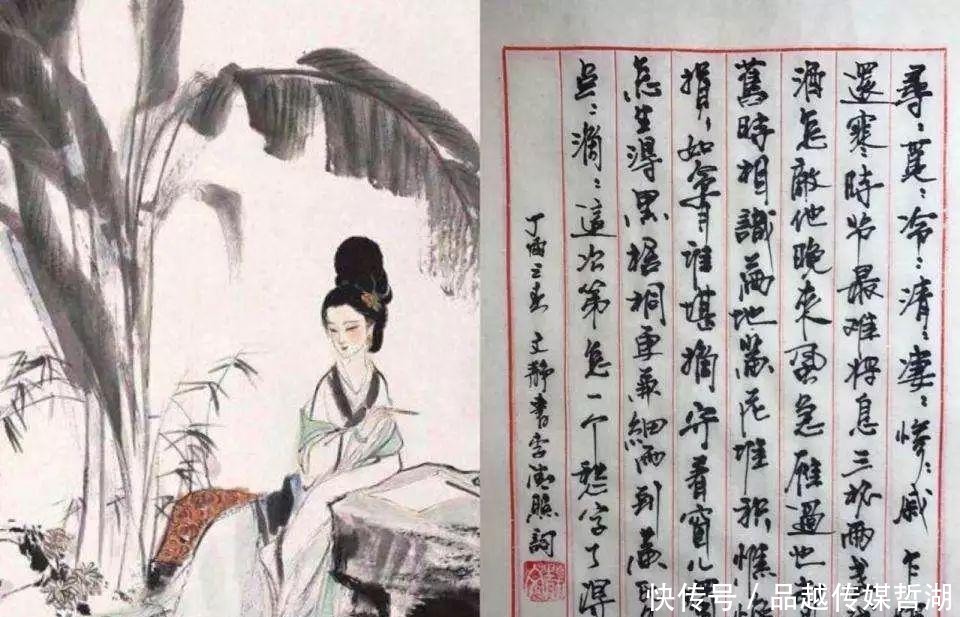 尋:覓:冷:清:凄:慘:戚乍
還寒時候最難將息三杯兩盞
酒怎敵他晚來風急雁過也
舊時相識滿地黃花堆積憔
損:如今有誰堪摘守着窗儿
怎生得黑梧桐更兼細雨到黃
点:滴:這次第怎一个愁字了得
丁酉三春 文静書李清照詞
快传号 / 品越传媒哲湖